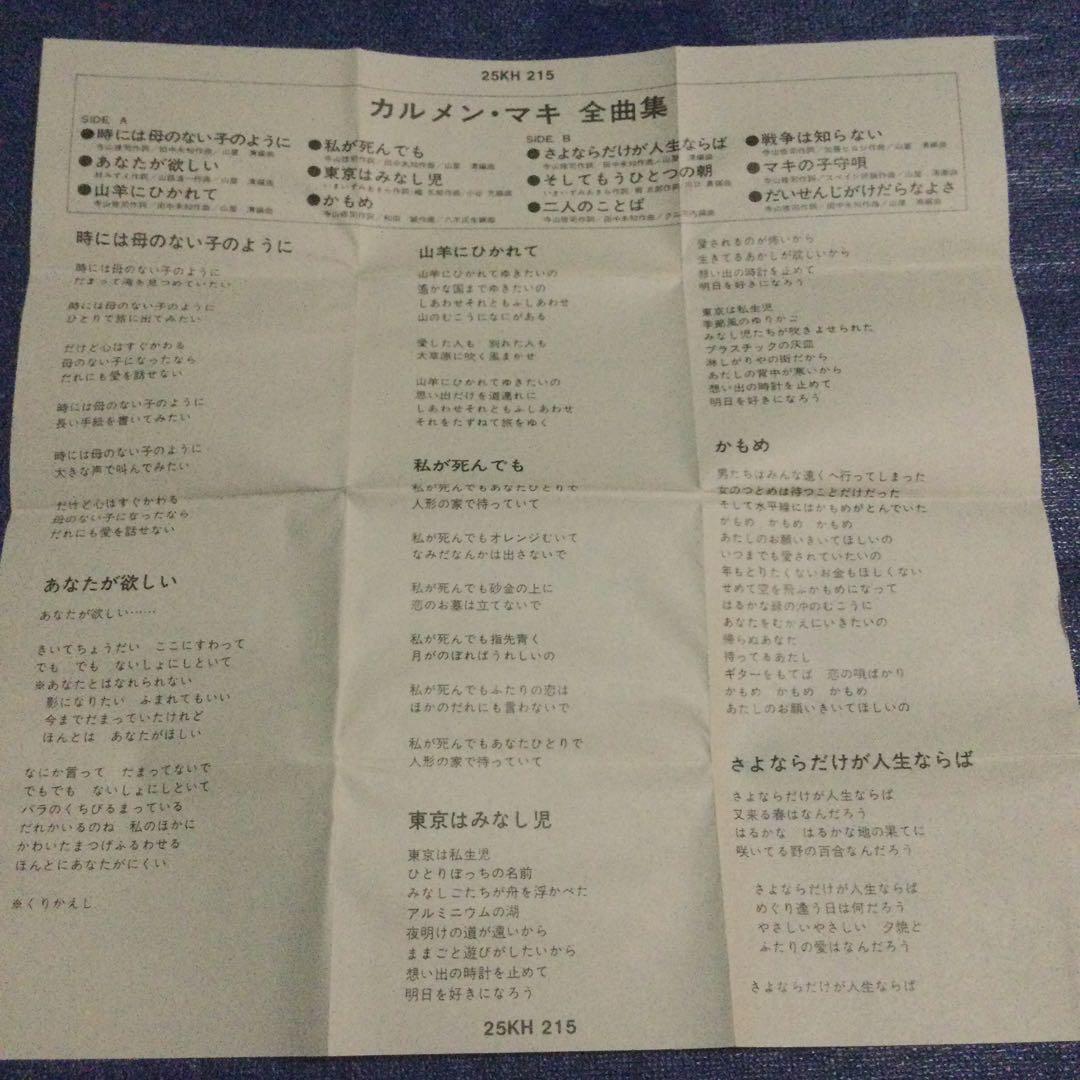 25KH 215
カルメン・マキ 全曲集
SIDE A
●時には母のない子のように
寺山修司作詞/田中未知作曲/山屋 清編曲
●あなたが欲しい
●山羊にひかれて
寺山修司作詞/田中未知作曲/山屋 清編曲
●私が死んでも
寺山修司作詞/田中未知作曲/山屋 清編曲
●東京はみなし児
●かもめ
寺山修司作詞/和田 誠作曲/八木正生編曲
SIDE B
●さよならだけが人生ならば
寺山修司作詞/田中未知作曲/山屋 清編曲
●そしてもうひとつの朝
●二人のことば
●戦争は知らない
寺山修司作詞/加藤ヒロシ作曲/山屋 清編曲
●マキの子守唄
●だいせんじがけだらなよさ
寺山修司作詞/田中未知作曲/山屋 清編曲
時には母のない子のように
時には母のない子のように
だまって海を見つめていたい
時には母のない子のように
ひとりで旅に出てみたい
だけど心はすぐかわる
母のない子になったなら
だれにも愛を話せない
時には母のない子のように
長い手紙を書いてみたい
時には母のない子のように
大きな声で叫んでみたい
だけど心はすぐかわる
母のない子になったなら
だれにも愛を話せない
あなたが欲しい
あなたが欲しい……
きいてちょうだい ここにすわって
でも でも ないしょにしといて
※あなたとはなれられない
影になりたい ふまれてもいい
今までだまっていたけれど
ほんとは あなたがほしい
なにか言って だまってないで
でもでも ないしょにしといて
バラのくちびるまっている
だれかいるのね 私のほかに
かわいたまつげふるわせる
ほんとにあなたがにくい
※くりかえし
山羊にひかれて
山羊にひかれてゆきたいの
遥かな国までゆきたいの
しあわせそれともふしあわせ
山のむこうになにがある
愛した人も 別れた人も
大草原に吹く風まかせ
山羊にひかれてゆきたいの
思い出だけを道連れに
しあわせそれともふしあわせ
それをたずねて旅をゆく
私が死んでも
私が死んでもあなたひとりで
人形の家で待っていて
私が死んでもオレンジむいて
なみだなんかは出さないで
私が死んでも砂金の上に
恋のお墓は立てないで
私が死んでも指先青く
月がのぼればうれしいの
私が死んでもふたりの恋は
ほかのだれにも言わないで
私が死んでもあなたひとりで
人形の家で待っていて
東京はみなし児
東京は私生児
ひとりぼっちの名前
みなしごたちが舟を浮かべた
アルミニウムの湖
夜明けの道が遠いから
ままごと遊びがしたいから
想い出の時計を止めて
明日を好きになろう
愛されるのが怖いから
生きてるあかしが欲しいから
想い出の時計を止めて
明日を好きになろう
東京は私生児
季節風のゆりかご
みなし児たちが吹きよせられた
プラスチックの灰皿
淋しがりやの街だから
あたしの背中が寒いから
想い出の時計を止めて
明日を好きになろう
かもめ
男たちはみんな遠くへ行ってしまった
女のつとめは待つことだけだった
そして水平線にはかもめがとんでいた
かもめ かもめ かもめ
あたしのお願いきいてほしいの
いつまでも愛されていたいの
年もとりたくないお金もほしくない
せめて空を飛ぶかもめになって
はるかな緑の沖のむこうに
あなたをむかえにいきたいの
帰らぬあなた
待ってるあたし
ギターをもてば 恋の唄ばかり
かもめ かもめ かもめ
あたしのお願いきいてほしいの
さよならだけが人生ならば
さよならだけが人生ならば
又来る春はなんだろう
はるかな はるかな地の果てに
咲いてる野の百合なんだろう
さよならだけが人生ならば
めぐり逢う日は何だろう
やさしいやさしい 夕焼と
ふたりの愛はなんだろう
さよならだけが人生ならば
25KH 215